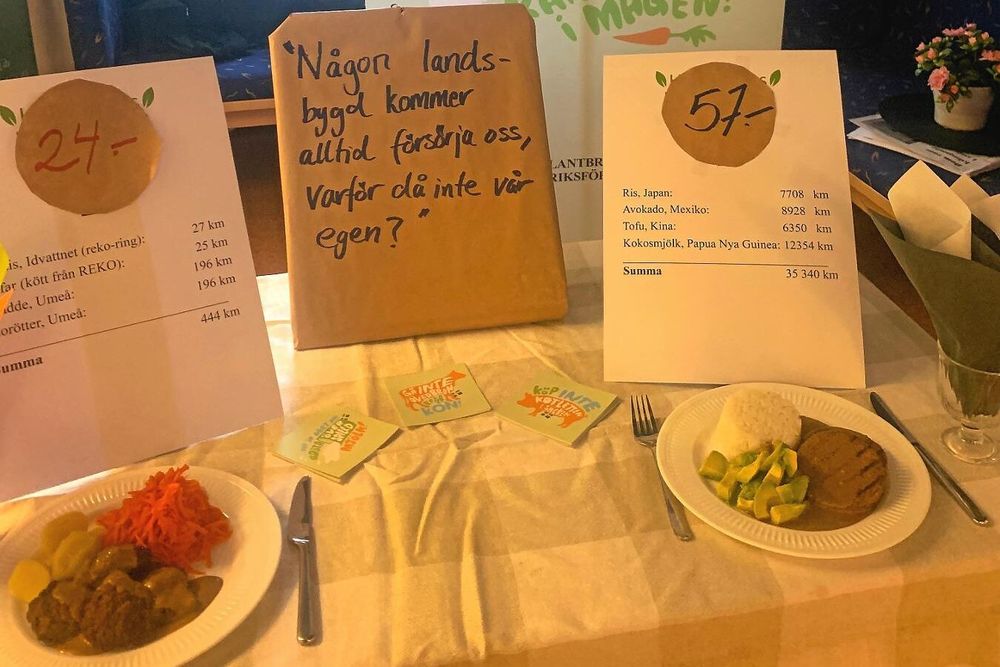 24.-
27 km
is, Idvattnet (reko-ring): 25 km
far (kött från REKO): 196 km
ädde, Umeå: 196 km
orötter, Umeå:
umma 444 km
"Någon lands-
bygd kommer
alltid försörja oss,
varför då inte vår
egen?"
I MAGEN!
LANTBR
RIKSFÖR
57.-
Ris, Japan: 7708 km
Avokado, Mexiko: 8928 km
Tofu, Kina: 6350 km
Kokosmjölk, Papua Nya Guinea: 12354 km
Summa 35 340 km
INTE
KÖN!
KÖP INTE